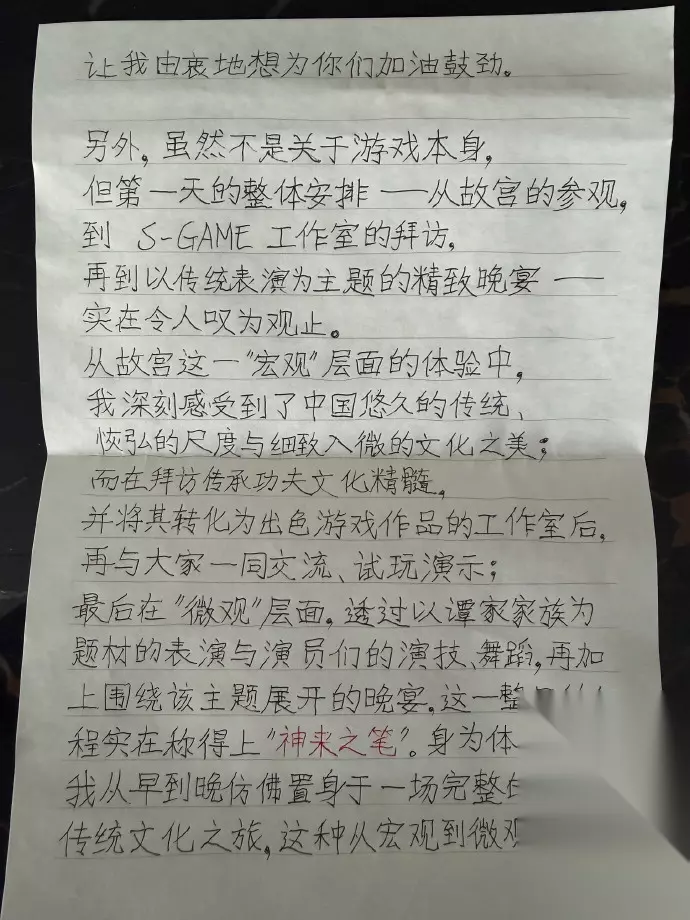 让我由衷地想为你们加油鼓劲。
另外，虽然不是关于游戏本身，
但第一天的整体安排——从故宫的参观，
到 S-GAME 工作室的拜访，
再到以传统表演为主题的精致晚宴——
实在令人叹为观止。
从故宫这一“宏观”层面的体验中，
我深刻感受到了中国悠久的传统、
恢弘的尺度与细致入微的文化之美；
而在拜访传承功夫文化精髓，
并将其转化为出色游戏作品的工作室后，
再与大家一同交流、试玩演示；
最后在“微观”层面，透过以谭家家族为
题材的表演与演员们的演技、舞蹈，再加
上围绕该主题展开的晚宴，这一整
程实在称得上“神来之笔”。身为体
我从早到晚仿佛置身于一场完整
传统文化之旅，这种从宏观到微观